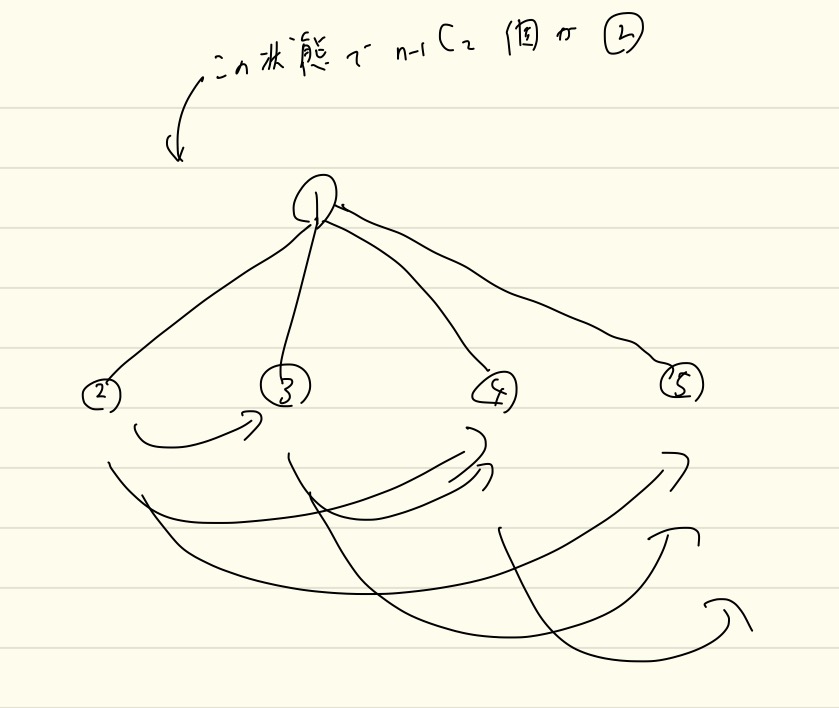 この状態で n-1C2 個が ②
①
② ③ ④ ⑤